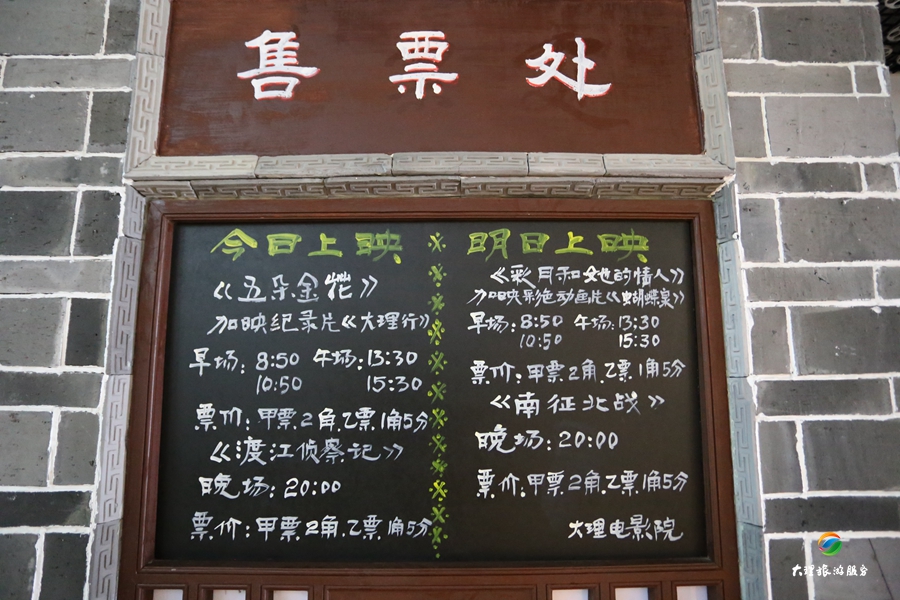 售票处
今日上映
《五朵金花》
加映纪录片《大理行》
早场:8:50 午场:13:30
10:50 15:30
票价:甲票2角.乙票1角5分
《渡江侦察记》
晚场:20:00
票价:甲票2角.乙票1角5分
明日上映
《彩月和她的情人》
加映彩色动画片《蝴蝶泉》
早场:8:50 午场:13:30
10:50 15:30
票价:甲票2角.乙票1角5分
《南征北战》
晚场:20:00
票价:甲票2角.乙票1角5分
大理电影院
大理旅游服务